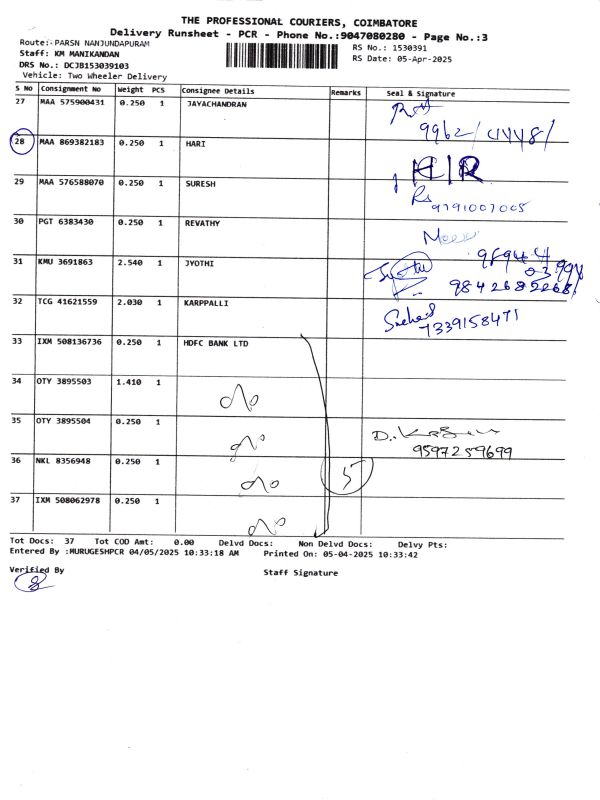 THE PROFESSIONAL COURIERS, COIMBATORE
Delivery Runsheet - PCR - Phone No.:9047080280 - Page No.:3
Route:- PARSN NANJUNDAPURAM
Staff: KM MANIKANDAN
DRS No.: DCJB153039103
Vehicle: Two Wheeler Delivery
RS No.: 1530391
RS Date: 05-Apr-2025
S No Consignment No Weight PCS Consignee Details Remarks Seal & Signature
27 MAA 575900431 0.250 1 JAYACHANDRAN
28 MAA 869382183 0.250 1 HARI
29 MAA 576588070 0.250 1 SURESH
9791007005
30 PGT 6383430 0.250 1 REVATHY
31 KMU 3691863 2.540 1 JYOTHI
Jyothi
32 TCG 41621559 2.030 1 KARPPALLI
7339158471
33 IXM 508136736 0.250 1 HDFC BANK LTD
34 OTY 3895503 1.410 1
35 OTY 3895504 0.250 1
9597259699
36 NKL 8356948 0.250 1
5
37 IXM 508062978 0.250 1
Tot Docs: 37 Tot COD Amt: 0.00 Delvd Docs: Non Delvd Docs: Delvy Pts:
Entered By :MURUGESHPCR 04/05/2025 10:33:18 AM Printed On: 05-04-2025 10:33:42
Verified By
Staff Signature